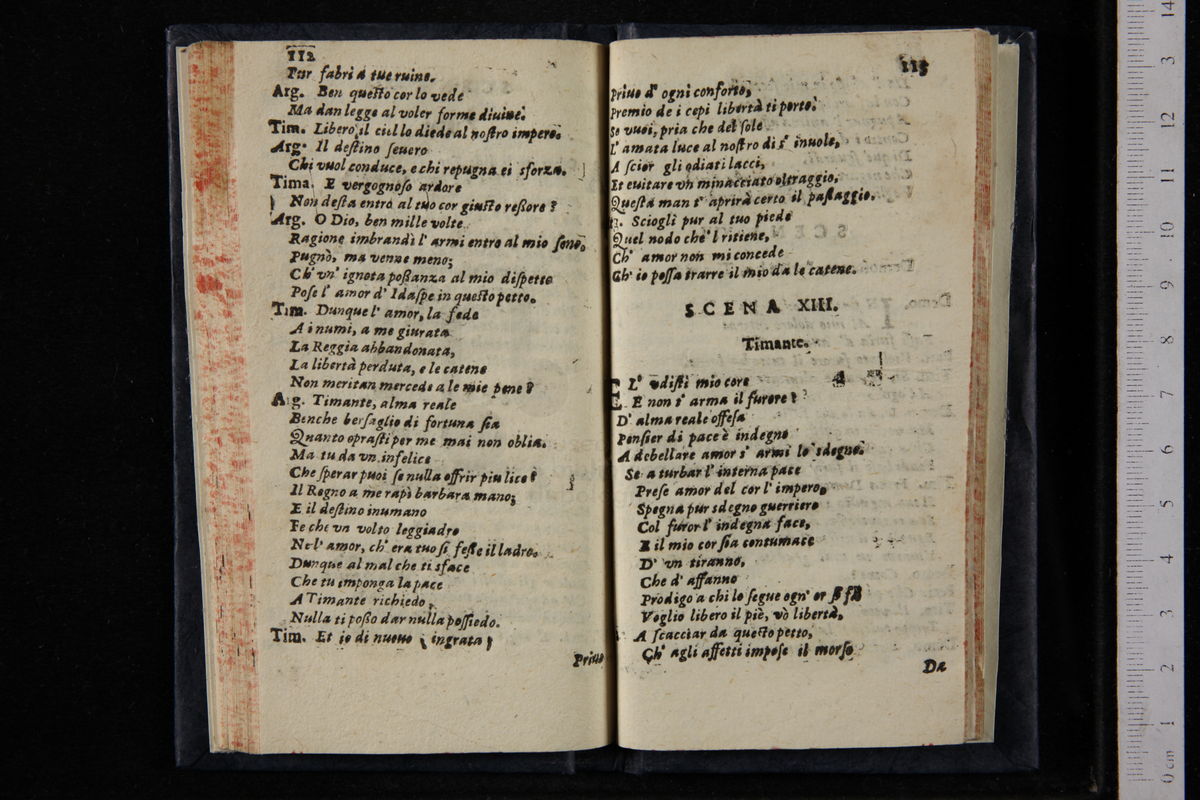 112
Pur fabri a tue ruine.
Arg. Ben queſto cor lo vede
Ma dan legge al voler forme diuine.
Tim. Libero il ciel lo diede al noſtro impero.
Arg. Il deſtino ſeuero
Chi vuol conduce, e chi repugna ei sforza.
Tima. E vergognoſo ardore
Non deſta entro al tuo cor giuſto roſſore?
Arg. O Dio, ben mille volte
Ragione imbrandì l'armi entro al mio ſeno,
Pugnò, ma venne meno;
Ch' vn' ignota poſſanza al mio diſpetto
Poſe l' amor d' Idaſpe in queſto petto.
Tim. Dunque l' amor, la fede
A i numi, a me giurata
La Reggia abbandonata,
La libertà perduta, e le catene
Non meritan mercede a le mie pene?
Arg. Timante, alma reale
Benche berſaglio di fortuna ſia
Quanto opraſti per me mai non oblia.
Ma tu da vn infelice
Che ſperar puoi ſe nulla offrir piu lice?
Il Regno a me rapì barbara mano;
E il deſtino inumano
Fe che vn volto leggiadro
Nel' amor, ch' era tuo ſi feſſe il ladro.
Dunque al mal che ti sface
Che tu imponga la pace
A Timante richiedo,
Nulla ti poſſo dar nulla poſſiedo.
Tim. Et io di nuouo, ingrata,
Priuo
113
Priuo d' ogni conforto,
Premio de i cepi libertà ti porto.
Se vuoi, pria che del ſole
L' amata luce al noſtro dì s' inuole,
A ſcior gli odiati lacci,
Et euitare vn minacciato oltraggio,
Queſta man t' aprirà certo il paſſaggio.
Sciogli pur al tuo piede
Quel nodo che'l ritiene,
Ch' amor non mi concede
Ch' io poſſa trarre il mio da le catene.
SCENA XIII.
Timante.
E L' vdiſti mio core
E non s' arma il furore?
D' alma reale offeſa
Penſier di pace è indegno
A debellare amor s' armi lo sdegno.
Se a turbar l' interna pace
Preſe amor del cor l' impero,
Spegna pur sdegno guerriero
Col furor l' indegna face,
E il mio cor ſia contumace
D' vn tiranno,
Che d' affanno
Prodigo a chi lo ſegue ogn' or
Voglio libero il piè, vò libertà,
A ſcacciar da queſto petto,
Ch' agli affetti impoſe il morſo
Da